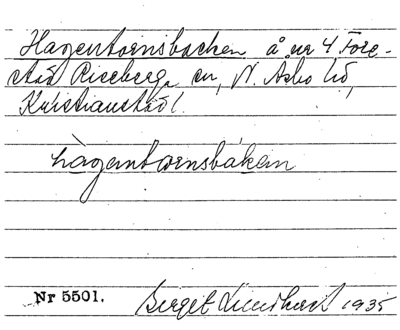 Hagentornsbacken å nr 4 Före-
stad Riseberga sn, N. Åsbo hd,
Kristianstad l.
hàgentornsbákan
Nr 5501.
Birgit 1935